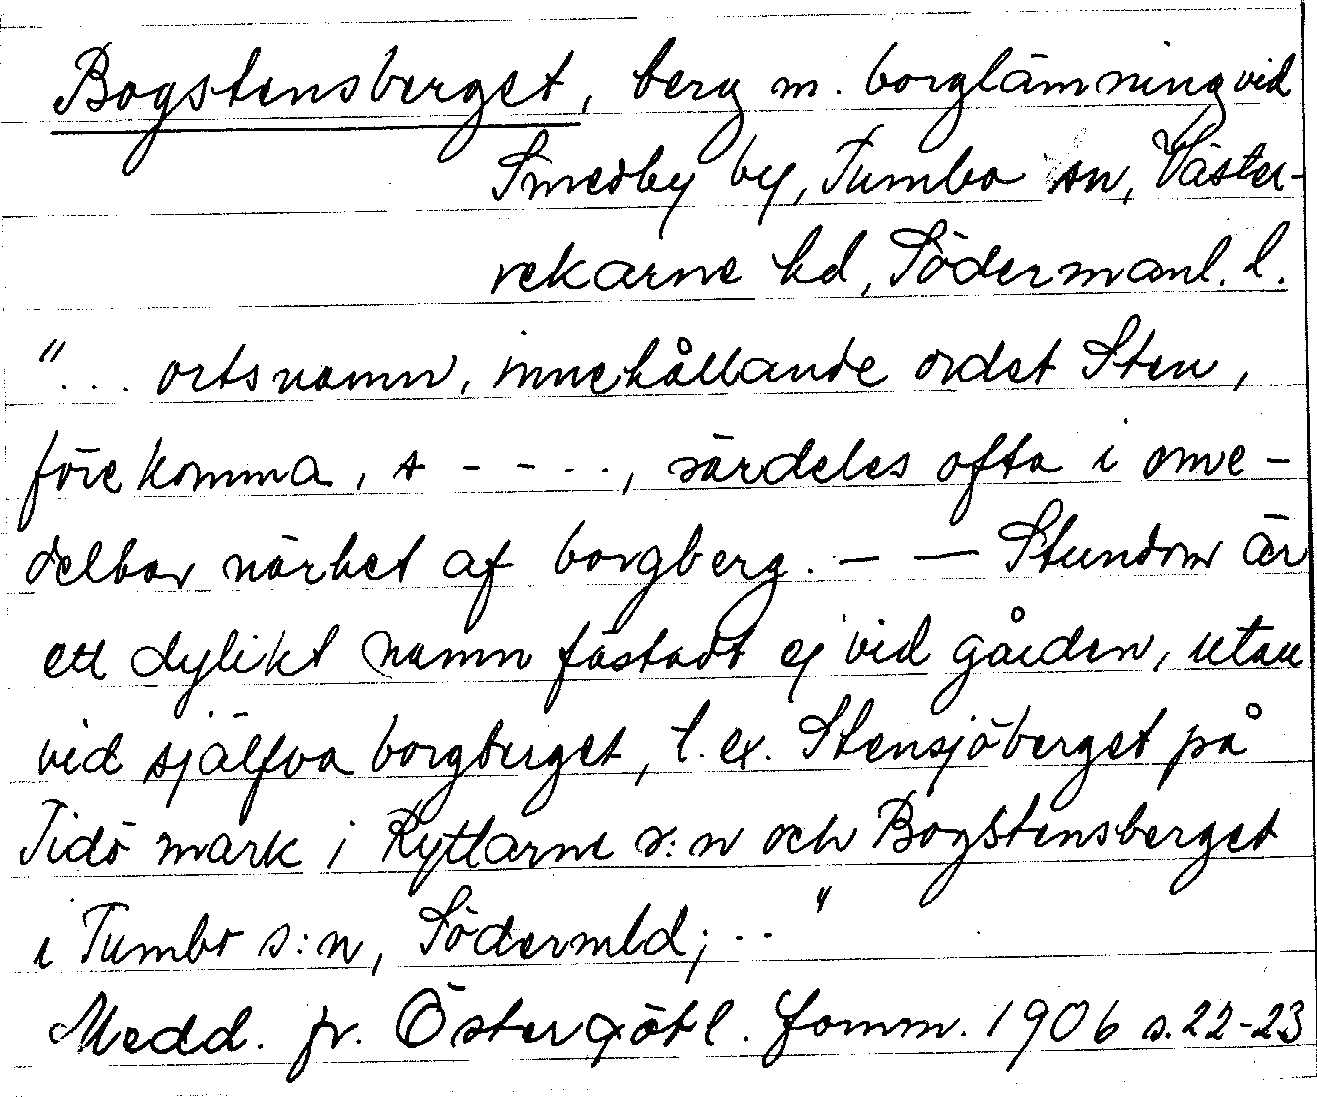 Bogstensberget, berg m. borglämning vid
Smedby by, Tumbo sn, Väster-
rekarne hd, Södermanl. l.
"... ortsnamn, innehållande ordet Sten,
förekomma, s - - - -, särdeles ofta i ome-
delbar närhet af borgberg. — — Stundom är
ett dylikt namn fästadt ej vid gården, utan
vid själfva borgberget, t. ex. Stensjöberget på
Tidö mark i Ryttarne s:n och Bogstensberget
i Tumbo s:n, Södermld; .."
Medd. fr. Östergötl. fornm. 1906 s. 22-23